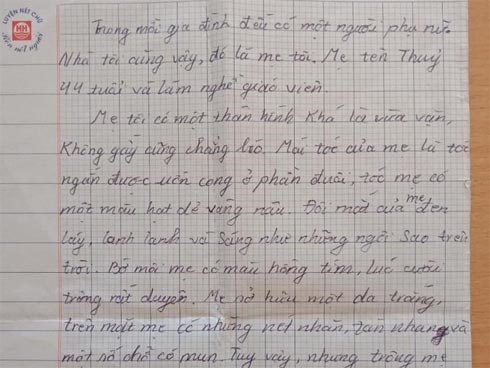 LUYỆN NÉT CHỮ
HH
Rèn nết người
Trong mỗi gia đình đều có một người phụ nữ.
Nhà tôi cũng vậy, đó là mẹ tôi. Mẹ tên Thuỷ
44 tuổi và làm nghề giáo viên.
Mẹ tôi có một thân hình khá là vừa vặn,
không gầy cũng chẳng béo. Mái tóc của mẹ là tóc
ngắn được uốn cong ở phần đuôi, tóc mẹ có
một màu hạt dẻ vàng nâu. Đôi mắt của mẹ đen
láy, lanh lanh và sáng như những ngôi sao trên
trời. Bờ môi mẹ có màu hồng tím, lúc cười
trông rất duyên. Mẹ sở hữu một da trắng,
trên mặt mẹ có những nét nhăn, tàn nhang và
một số chỗ có mụn. Tuy vậy, nhưng trông mẹ